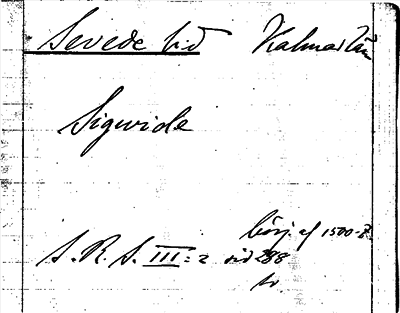 Sevede hd Kalmar län
Sigwide
börj. af 1500-t.
S. R. S. III:2 sid 288